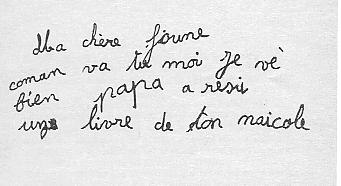 Ma chère foune
coman va tu moi je vè
bien papa a resu
une livre de ton naicole